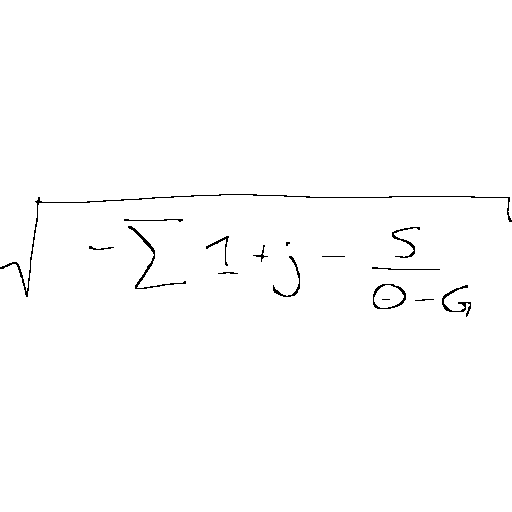 \sqrt{-\sum 1+j-\frac{S}{\Theta-G}}